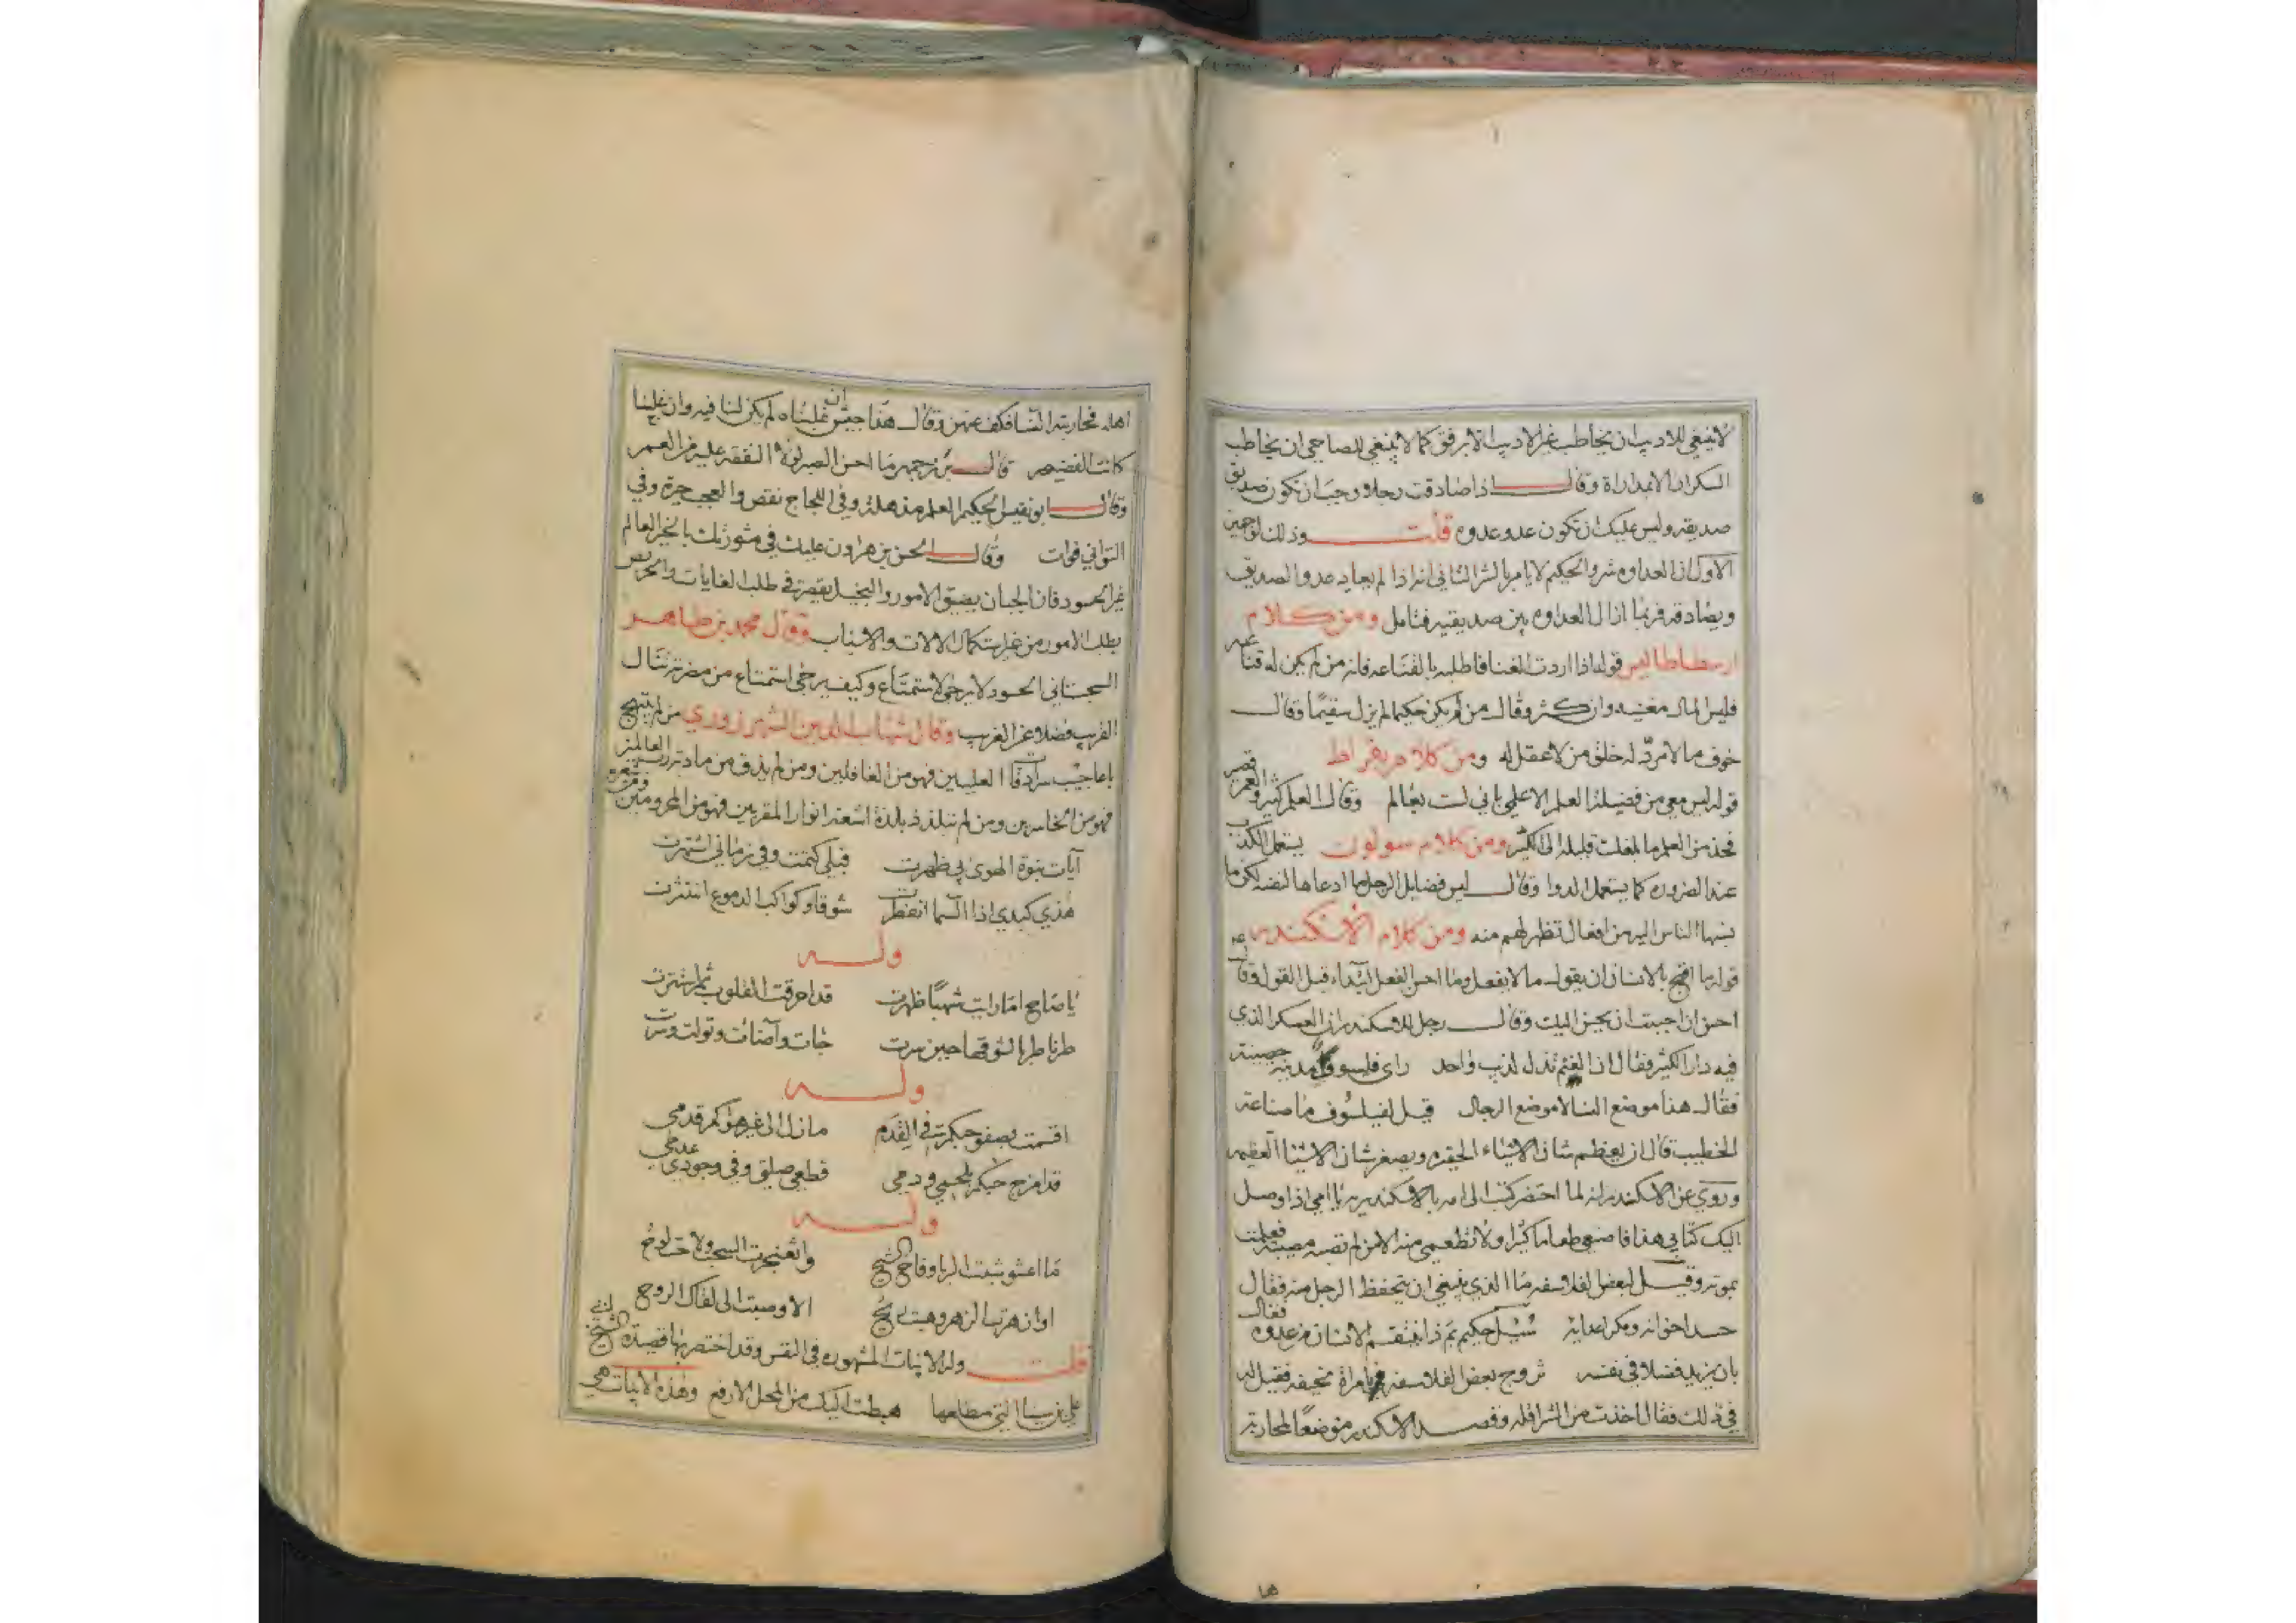 لا ينبغي للاديب ان يخاطب غير الاديب الا برفق كما لا ينبغي للصاحي ان يخاطب
السكران الا بمداراة وقال اذا صادقت رجلا وجب ان تكون صديق
صديقه وليس عليك ان تكون عدو عدوه قلت وذلك لوجهين
الاول ان العداوه شر والحكيم لا يامر بالشر الثاني انه اذا لم يعاد عدو الصديق
ويصادقه فربما ازال العداوه بين صديقيه فتامل ومن كلام
ارسطاطاليس قوله اذا اردت الغنا فاطلبه بالقناعه فانه من لم يكن له قناعه
فليس المال مغنيه وان كثر وقال من لم يكن حكيما لم يزل سقيمًا وقال
خوف ما لا مردّ له خلق من لا عقل له ومن كلام بقراط
قوله ليس معي من فضيلة العلم الا علمي باني لست بعالم وقال العلم كثير والعمر قصير
فخذ من العلم ما بلغك قليله الى الكثير ومن كلام سولون يستعمل الكذب
عند الضروره كما يستعمل الدوا وقال ليس فضايل الرجل ما ادعاها لنفسه لكن ما
نسبها الناس اليه من افعال تظهر لهم منه ومن كلام الاسكندر
قوله ما اقبح بالانسان ان يقول ما لا يفعل وما احسن الفعل ابتداء قبل القول وقال
احسن ان احببت ان يحسن اليك وقال رجل للاسكندر ان العسكر الذي
فيه دارا كثير فقال ان الغنم تذل لذيب واحد راى فيلسوف مدينة حصينة
فقال هذا موضع النسا لا موضع الرجال قيل لفيلسوف ما صناعة
الخطيب قال ان يعظم شان الاشياء الحقيره ويصغر شان الاشيا العظيمه
وروي عن الاسكندر انه لما احتضر كتب الى امه بالاسكندريه يا امي اذا وصل
اليك كتابي هذا فاصنعي طعاما كثيرا ولا تطعمي منه الا من لم تصبه مصيبة فعلمت
بموته وقيل لبعض الفلاسفه ما الذي ينبغي ان يتحفظ الرجل منه فقال
حسد اخوانه ومكر اعدايه سُئِل حكيم بم ذا ينتقم الانسان من عدوه فقال
بان يزيد فضلا في نفسه تزوج بعض الفلاسفه بامراة نحيفه فقيل له
في ذلك فقال اخذت من الشر اقله وقصد الاسكندر موضعًا لمحاربة
اهله فحاربته النسا فكف عنهن وقال هذا جيش ان غلبناه لم يكن لنا فيه وان غلبنا
كانت الفضيحه قال بزرجمهر ما احسن الصبر لولا ان النفقه عليه من العمر
وقال الحكيم العلم وفي اللجاج نقص والعجب حيرة وفي
التواني فوات وقال الحسن بن هرارون عليك في مشورتك بالخير العالم
غير الحسود فان الجبان يضيق الامور والبخيل يقصر في طلب الغايات والحريص
يطلب الامور من غير استكمال الالات والاسباب وقال محمد بن طاهر
السجستاني الحسود لا يرجى لاستمتاع وكيف يرجى استمتاع من مضرته تنال
القريب فضلا عن الغريب وقال شهاب الدين الشهرزوري من لم يبتهج
باعاجيب سرادقات العليين فهو من الغافلين ومن لم يذق من مادبة العالمين
فهو من الخاسرين ومن لم يتلذذ بلذة اشعة انوار المقربين فهو من المحرومين ومن شعره
آيات نبوة الهوى بي ظهرت قبلي كتمت وفي زماني اشتهرت
هذي كبدي اذا السما انفطرت شوقا وكواكب الدموع انتثرت
وله
يا صاح اما رايت شهبًا ظهرت قد احرقت القلوب ثم استترت
طرنا طربا لشوقها حين سرت جات وآضات وتولت وسرت
وله
اقسمت بصفو حبكم في القدم ما زل الى غير هواكم قدمي
قد امزج حبكم بلحمي ودمي قطعي صلتي وفي وجودي عدمي
وله
ما اعشوشبت الربا وفاح الشيح واثعنجرت السحب ولاحت
او ازهرت الزهر وهبت ريح الا وصبت الى لقاك الروح
قلت وله الابيات المشهوره في النفس وقد اختصر بها قصيدة الشيخ
علي بن سينا التي مطلعها هبطت اليك من المحل الارفع وهذه الابيات هي